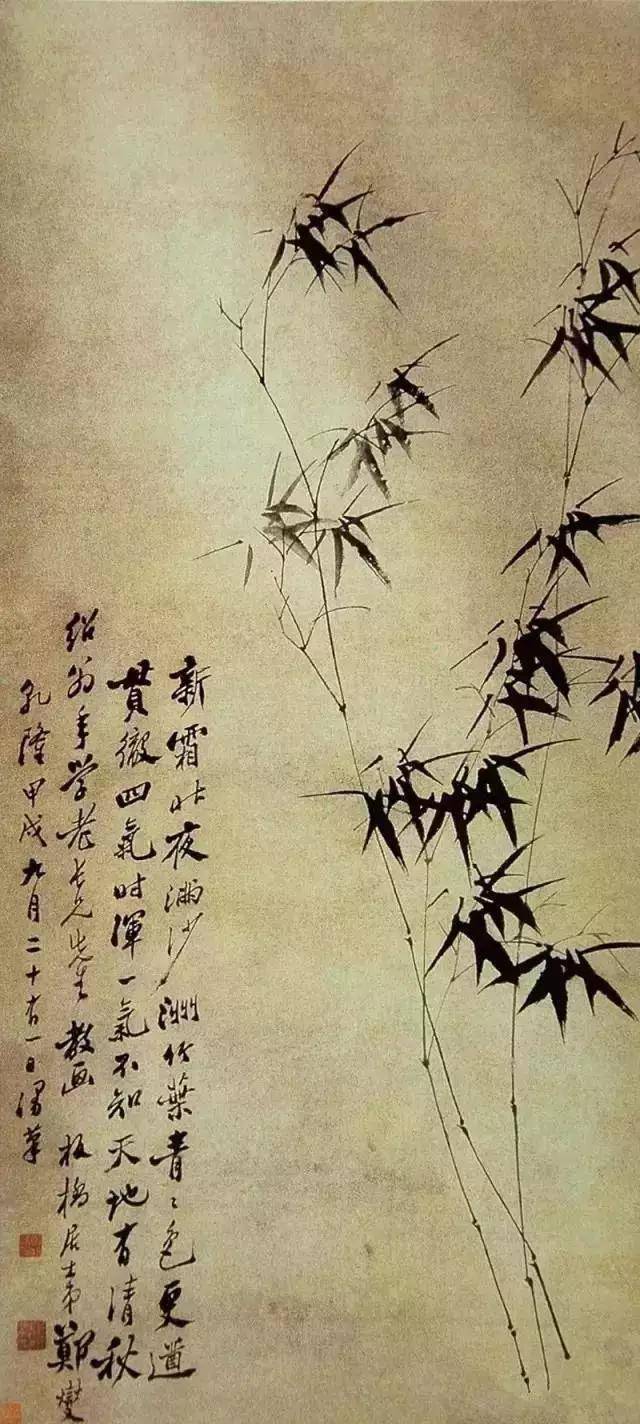 新霜昨夜滿沙洲竹葉青〻色更遒
貫徹四氣时渾一氣不知天地有清秋
紹翁年学老长兄先生教画 板橋居士弟鄭燮
乾隆甲戌九月二十有一日